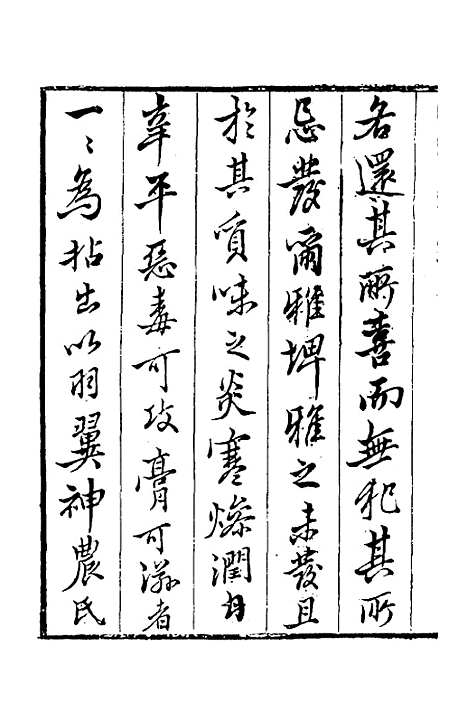 各還其所喜而無犯其所
忌發爾雅埤雅之未發且
於其質味之炎寒燥潤甘
辛平惡毒可攻膏可滋者
一〻為拈出以羽翼神農氏